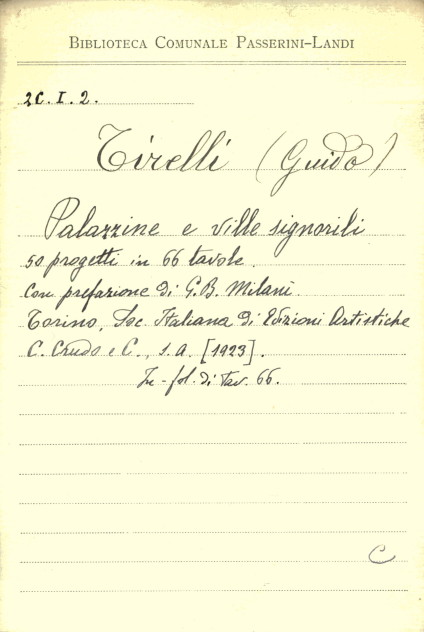 BIBLIOTECA COMUNALE PASSERINI-LANDI
2C.I.2.
Tirelli (Guido)
Palazzine e ville signorili
50 progetti in 66 tavole.
Con prefazione di G.B. Milani.
Torino, Soc. Italiana di Edizioni Artistiche
C. Crudo e C., s.a. [1923].
In-fol. di tav. 66.
C